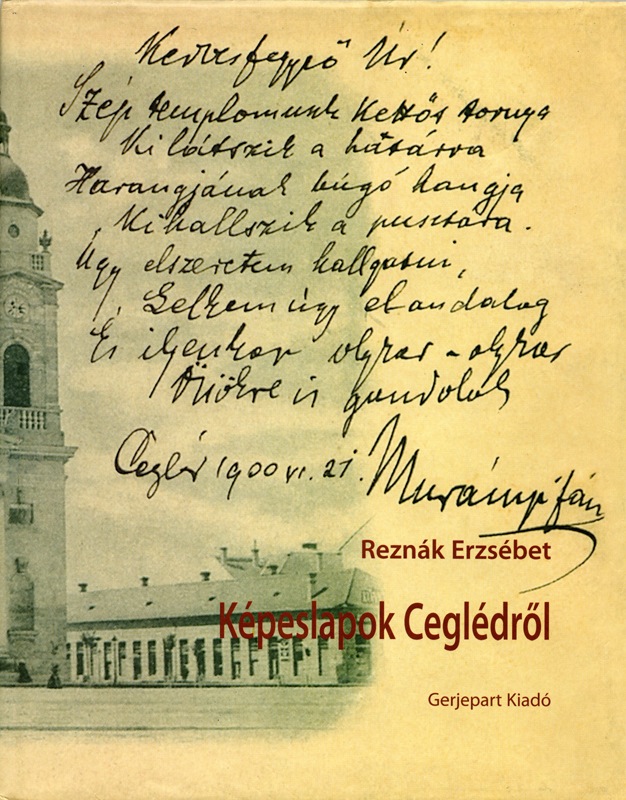 Kedves fegyző Úr!
Szép templomunk Kettős tornya
Ki látszik a hătárra
Harangjának búgó hangja
Ki hallszik a pusztára.
Úgy elszeretem hallgatni,
Lelkem úgy el andalog
És ilyenkor olykor - olykor
Önökre is gondolok
Cegléd 1900 VI. 21.
Murányi Ján
Reznák Erzsébet
Képeslapok Ceglédről
Gerjepart Kiadó